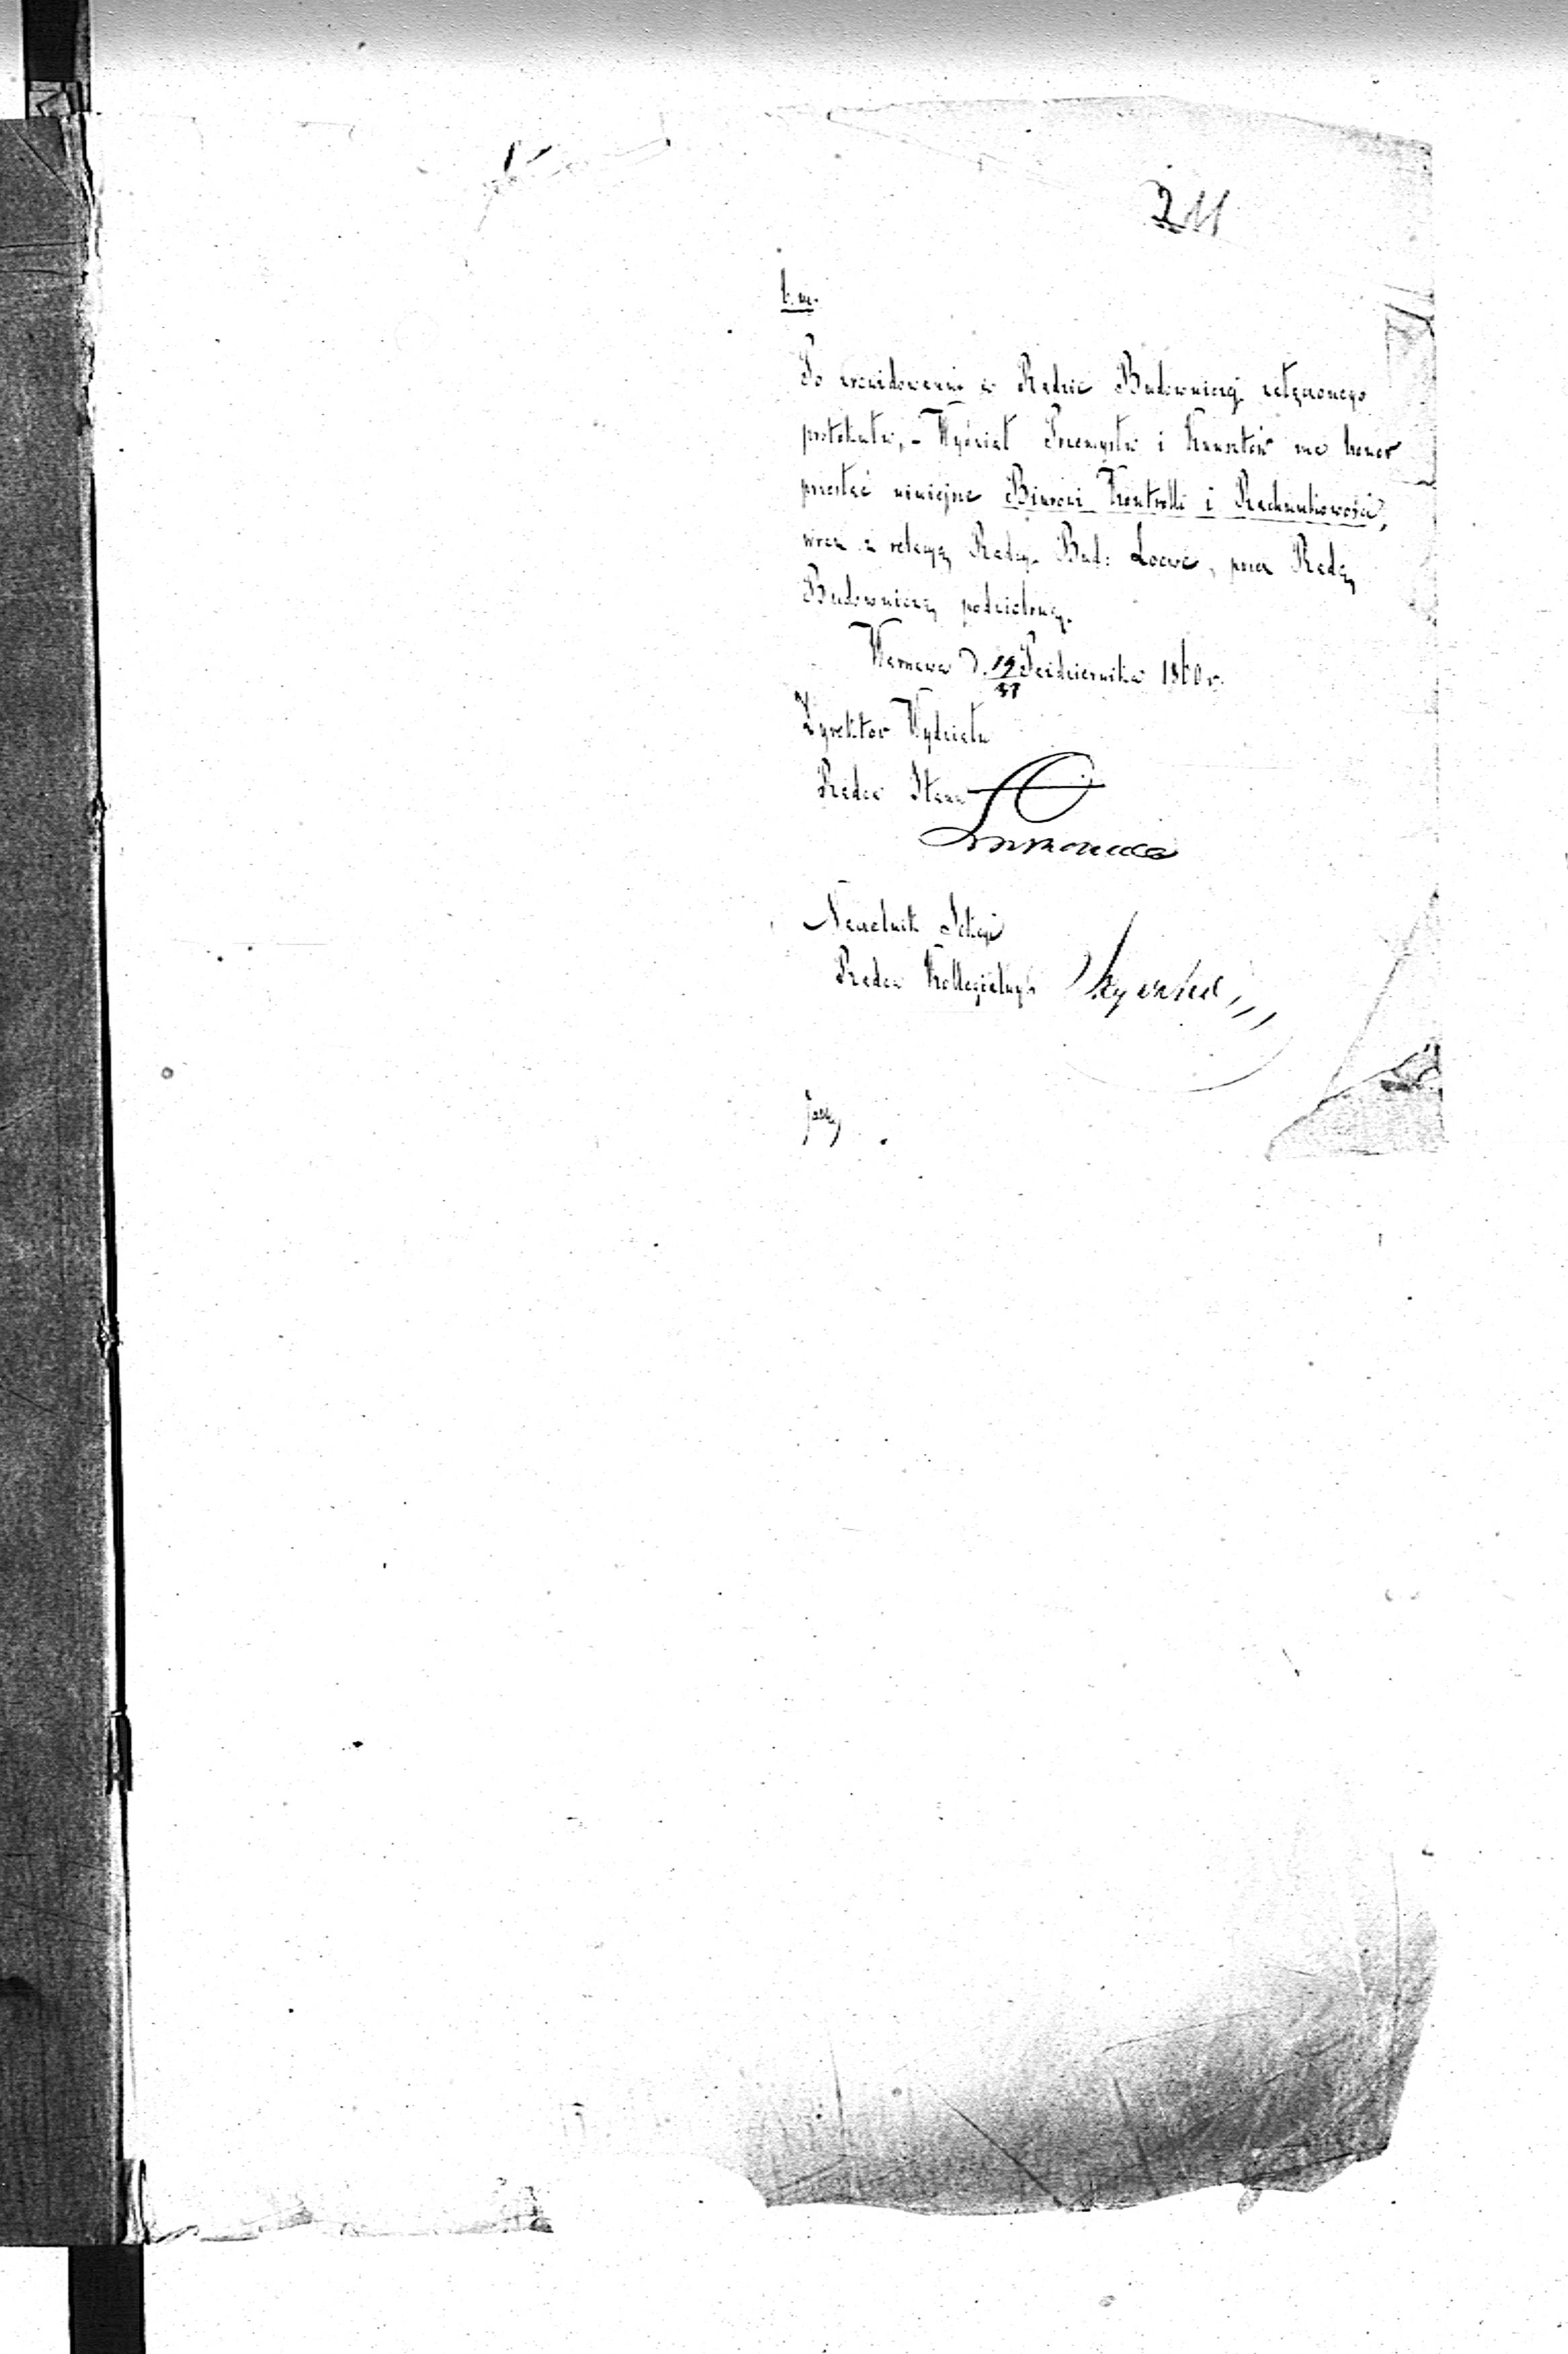 211
b. m.
Po zrewidowaniu w Radzie Budowniczej załączonego
protokułu, - Wydział Przemysłu i Kunsztów ma honor
przesłać niniejsze Biurowi Kontrolli i Rachunkowości,
wraz z relacyą Radcy Bud: Loewe, przez Radę
Budowniczą podzieloną.
Warszawa d. 19/31 Października 1860 r.
Dyrektor Wydziału
Radca Stanu
Naczelnik Sekcyi
Radca Kollegialny